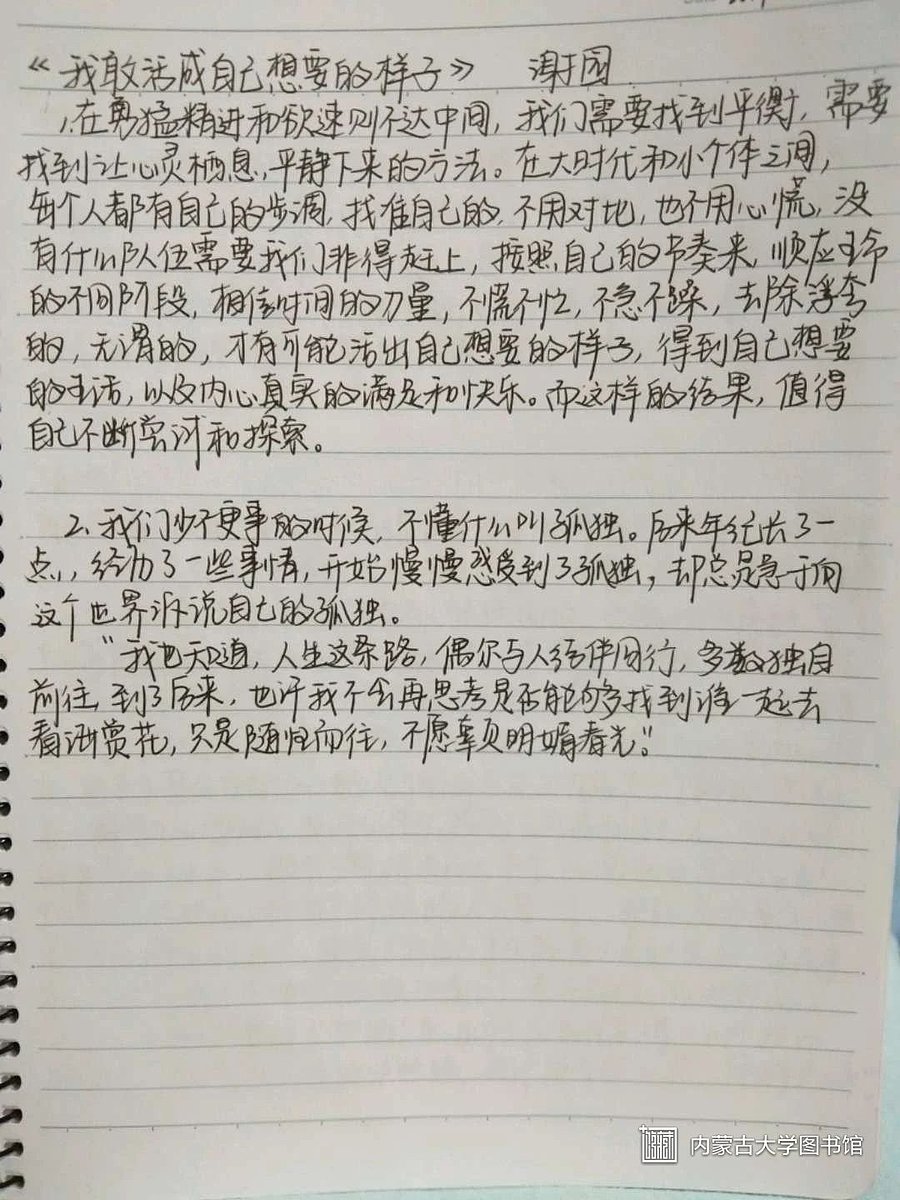 《我敢活成自己想要的样子》 谢园
1.在勇猛精进和欲速则不达中间，我们需要找到平衡，需要
找到让心灵栖息，平静下来的方法。在大时代和小个体之间，
每个人都有自己的步调，找准自己的，不用对地，也不用心慌，没
有什么队伍需要我们非得赶上，按照自己的节奏来，顺应生命
的不同阶段，相信时间的力量，不慌不忙，不急不躁，去除浮夸
的，无谓的，才有可能活出自己想要的样子，得到自己想要
的生活，以及内心真实的满足和快乐。而这样的结果，值得
自己不断尝试和探索。
2.我们少不更事的时候，不懂什么叫孤独。后来年纪长了一
点，经历了一些事情，开始慢慢感受到了孤独，却总是急于向
这个世界诉说自己的孤独。
“我也知道，人生这条路，偶尔与人结伴同行，多数独自
前往，到了后来，也许我不会再思考是否能够多找到谁一起去
看海赏花，只是随性而往，不愿辜负明媚春光。”
内蒙古大学图书馆